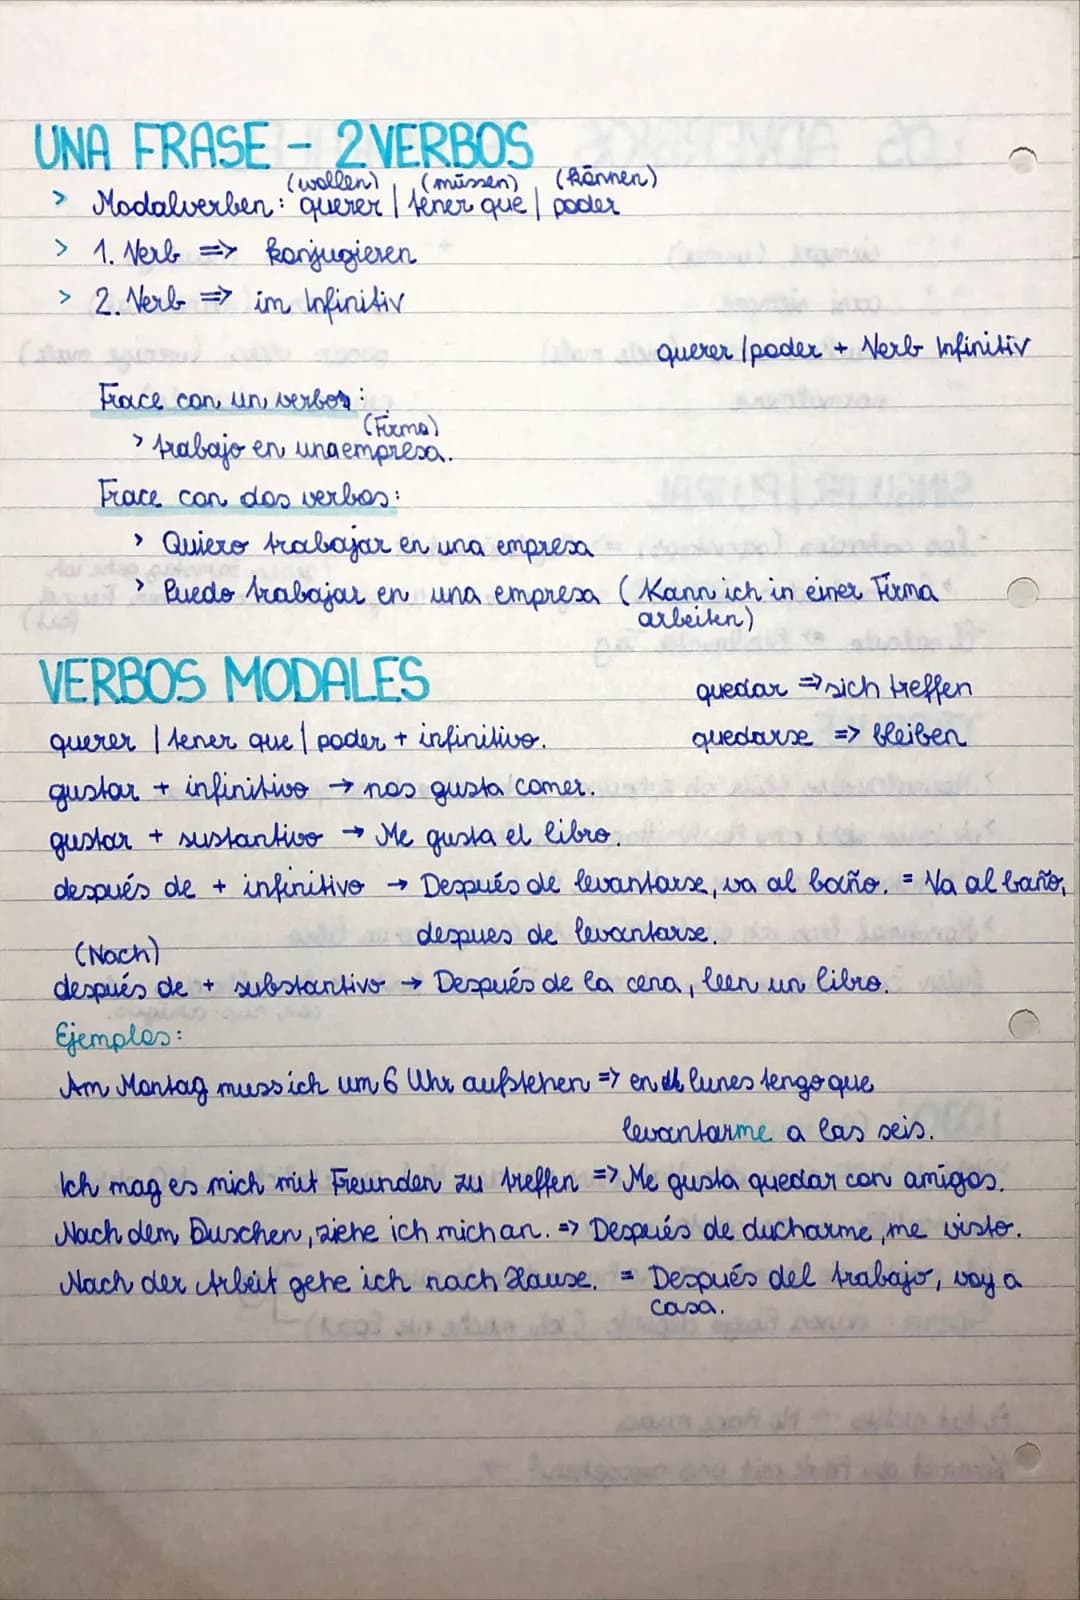 UNA FRASE - 2 VERBOS
(wollen) (müssen) (können)
> Modalverben: querer | tener que | poder
> 1. Verb => konjugieren
> 2. Verb => im Infinitiv
querer /poder + Verb Infinitiv
Frace con un verbo:
(Firma)
> trabajo en una empresa.
Frace con dos verbos:
> Quiero trabajar en una empresa
> Puedo trabajar en una empresa (Kann ich in einer Firma
arbeiten)
VERBOS MODALES
quedar => sich treffen
querer | tener que | poder + infinitivo.
quedarse => bleiben
gustar + infinitivo → nos gusta comer.
gustar + sustantivo → Me gusta el libro.
después de + infinitivo → Después de levantarse, va al baño. = Va al baño,
despues de levantarse.
(Nach)
después de + substantivo → Después de la cena, leen un libro.
Ejemplos:
Am Montag muss ich um 6 Uhr aufstehen => en lunes tengo que
levantarme a las seis.
Ich mag es mich mit Freunden zu treffen => Me gusta quedar con amigos.
Nach dem Duschen, ziehe ich mich an. => Después de ducharme, me visto.
Nach der Arbeit gehe ich nach Hause. = Después del trabajo, voy a
casa.